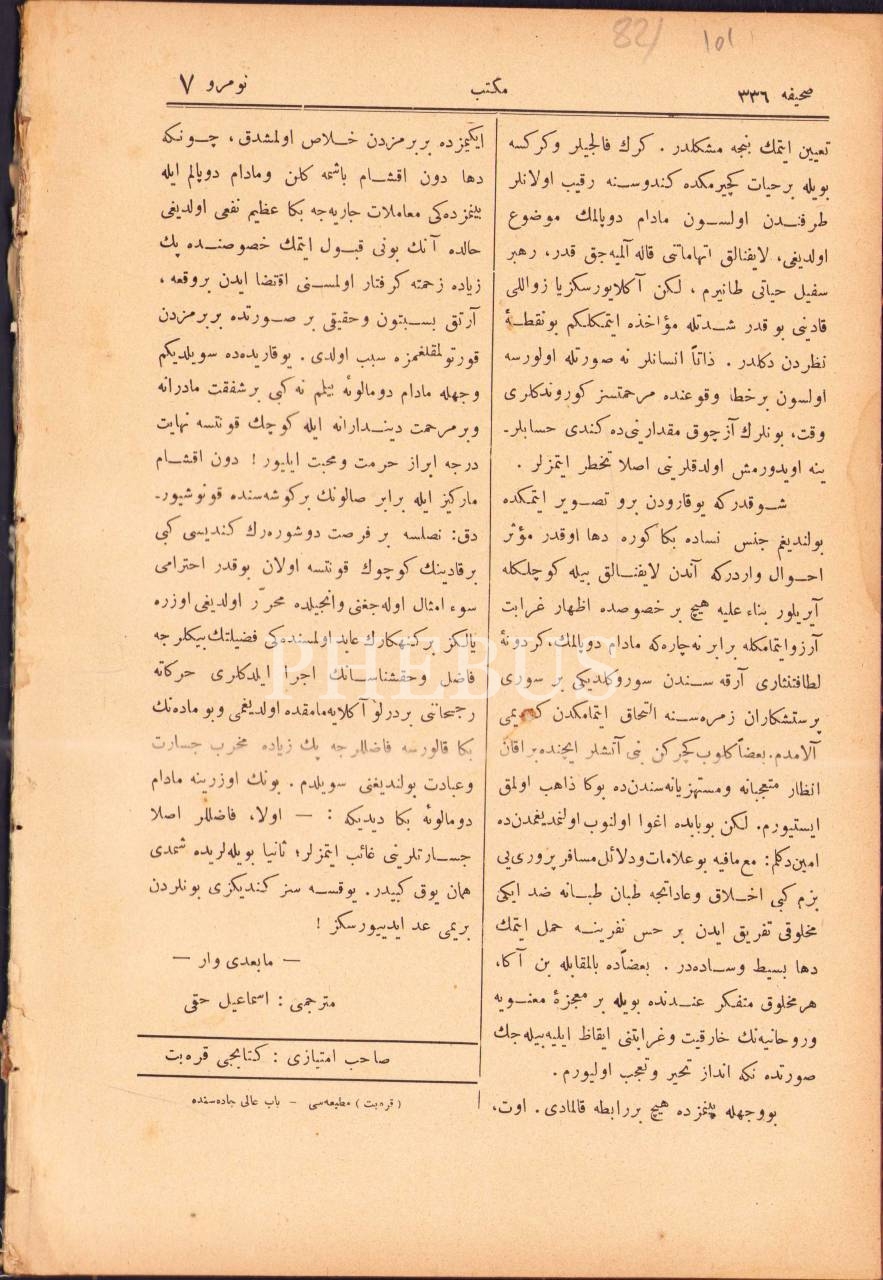 82/ 101
صحیفه ٣٣٦
مكتب
نومرو ٧
تعیین ایتمك نیجه مشكلدر . كرك فالجیلر وكركسه
بویله برحیات كچیرمكده كندوسـنه رقیب اولانلر
طرفندن اولسـون مادام دوپالمك موضوع
اولدیغی، لایفنالق اتهاماتنی قاله آلمیه‌جق قدر، رهبر
سفیل حیاتی طانیرم ، لكن آكلایورسكزیا زواللی
قادینی بو قدر شـدتله مؤاخذه ایتمكلكم بونقطـهٔ
نظردن دكلدر . ذاتاً انسانلر نه صورتله اولورسه
اولسون برخطا وقوعنده مرحمتسز كوروندكلری
وقت، بونلرك آز چوق مقدارینی‌ده كندی حسابلر-
ینه اویدورمش اولدقلرینی اصلا تخطر ایتمزلر .
شـوقدركه یوقارودن برو تصـویر ایتمكده
بولندیغم جنس نساده بكا كوره دها اوقدر مؤثر
احـوال واردركه آندن لایفنـالق بیله كوچلكله
آیریلور بناء علیه هیچ بر خصوصده اظهار غرابت
آرزو ایتمامكله برابر نه چاره‌كه مادام دوپالمك، كردونهٔ
لطافتنثاری آرقه سـندن سوروكلدیكی بر سوری
پرستشكاران زمره‌سـنه التحاق ایتمامكدن كندیمی
آلامدم. بعضاً كلوب كچركن بنی آتشلر ایچنده براقان
انظار متعجبانه ومستهزیانه‌سندن‌ده بوكا ذاهب اولمق
ایستیورم. لكن بوبابده اغوا اولنوب اولنمدیغمدن‌ده
امین دكلم: مع‌مافیه بو علامات ودلائل مسافر پروری‌یی
بزم كبی اخـلاق وعاداتجه طبان طبـانه ضد ایكی
مخلوقی تفریق ایدن بر حس نفرینـه حمل ایتمك
دها بسیط وسـاده‌در . بعضاً‌ده بالمقابله بن آكا،
هر مخلوق متفكر عنـدنده بویله بر معجزهٔ معنـویه
وروحانیه‌نك خارقیت وغرابتنی ایقاظ ایلیه‌بیله‌جك
صورتده نكه انداز تحیر وتعجب اولیورم.
بووجهله بینمزده هیچ بررابطه قالمادی. اوت،
ایكیمزده بربرمزدن خـلاص اولمشدق، چـونكه
دها دون اقشـام باشمه كلن ومادام دوپالم ایله
بینمزده‌كی معاملات جاریه‌جه بكا عظیم نفعی اولدیغی
حالده آنك بونی قبـول ایتمك خصوصنـده پك
زیاده زحمته كرفتار اولمسـنی اقتضا ایدن بروقعه ،
آرتق بسـبتون وحقیقی بر صـورتده بربرمزدن
قورتولمقلغمزه سبب اولدی . یوقاریده‌ده سویلدیكم
وجهله مادام دومالوئه بیلم نه كبی برشفقت مادرانه
وبرمرحمت دینـدارانه ایله كوچك قونتسه نهایت
درجه ابراز حرمت ومحبت ایلیور ! دون اقشـام
ماركیز ایله برابر صالونك بركوشه‌سنده قونوشیور-
دق: نصلسه بر فرصت دوشوره‌رك كندیسی كبی
برقادینك كوچوك قونتسه اولان بوقدر احترامی
سوء امثال اوله‌جغنی وانجیلده محرّر اولدیغی اوزره
یالكز بركنهكارك عابد اولمسنده‌كی فضیلتك بیكلرجه
فاضل وحقشناسـانك اجرا ایلدكلری حركاته
رجحاننی بردرلو آكلایه‌مامقده اولدیغمی وبو ماده‌نك
بكا قالورسه فاضللرجه پك زیاده مخرب جسارت
وعبادت بولندیغنی سویلدم . بونك اوزرینه مادام
دومالوئه بكا دیدیكه : — اولا، فاضللر اصلا
جسـارتلرینی غائب ایتمزلر؛ ثانیا بویله‌لریده شمدی
همان یوق كبیدر. یوقسـه سز كندیكزی بونلردن
بریمی عد ایدییورسكز !
— مابعدی وار —
مترجمی : اسماعیل حقی
صاحب امتیازی : كتابجی قره‌بت
(قره‌بت) مطبعه‌سی - باب عالی جاده‌سنده
PHEBUS